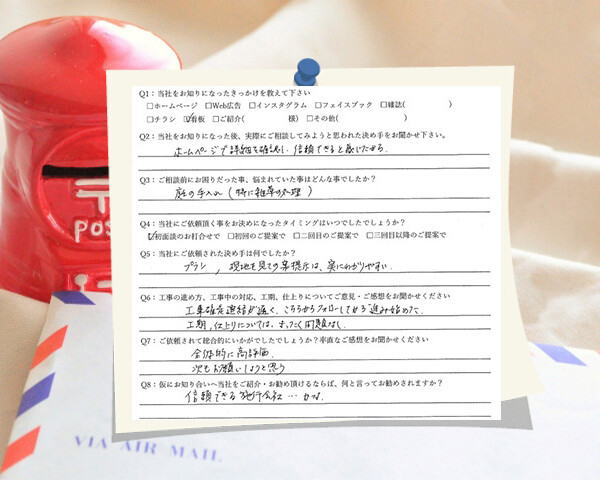 Q1：当社をお知りになったきっかけを教えて下さい
□ホームページ □Web広告 □インスタグラム □フェイスブック □雑誌( )
□チラシ ☑看板 □ご紹介( 様) □その他( )
Q2：当社をお知りになった後、実際にご相談してみようと思われた決め手をお聞かせ下さい。
ホームページで詳細を確認し、信頼できると感じたから。
Q3：ご相談前にお困りだった事、悩まれていた事はどんな事でしたか？
庭の手入れ（特に雑草の処理）
Q4：当社にご依頼頂く事をお決めになったタイミングはいつでしたでしょうか？
☑初面談のお打合せで □初回のご提案で □二回目のご提案で □三回目以降のご提案で
Q5：当社にご依頼された決め手は何でしたか？
プラン、現地を見ての 提示は、実にわかりやすい.
Q6：工事の進め方、工事中の対応、工期、仕上りについてご意見・ご感想をお聞かせください
工事確定連絡が遅く、こちらからフォローしてから進み始めた.
工期、仕上りについては、まったく問題なし.
Q7：ご依頼されて総合的にいかがでしたでしょうか？率直なご感想をお聞かせください
全体的に高評価.
次もお願いしようと思う
Q8：仮にお知り合いへ当社をご紹介・お勧め頂けるならば、何と言ってお勧めされますか？
信頼できる施行会社…かな.
〒
POS
VIA AIR MAIL